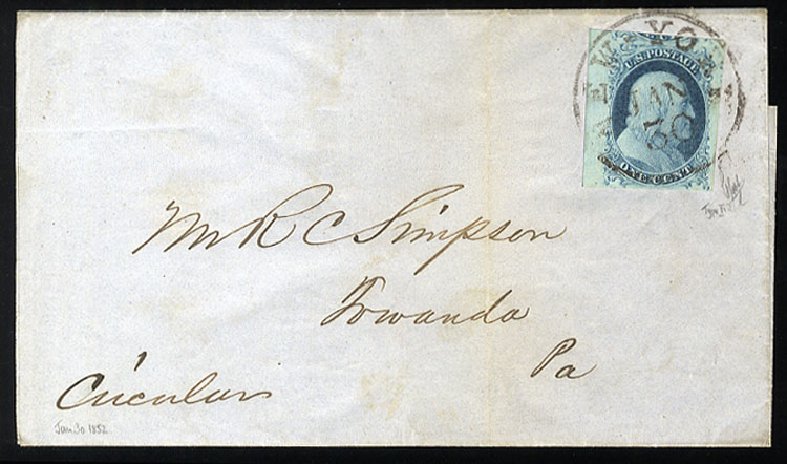 U.S. POSTAGE
ONE CENT
JAN
Mr R C Simpson
Towanda
Pa
Circular
Jan 30 1852